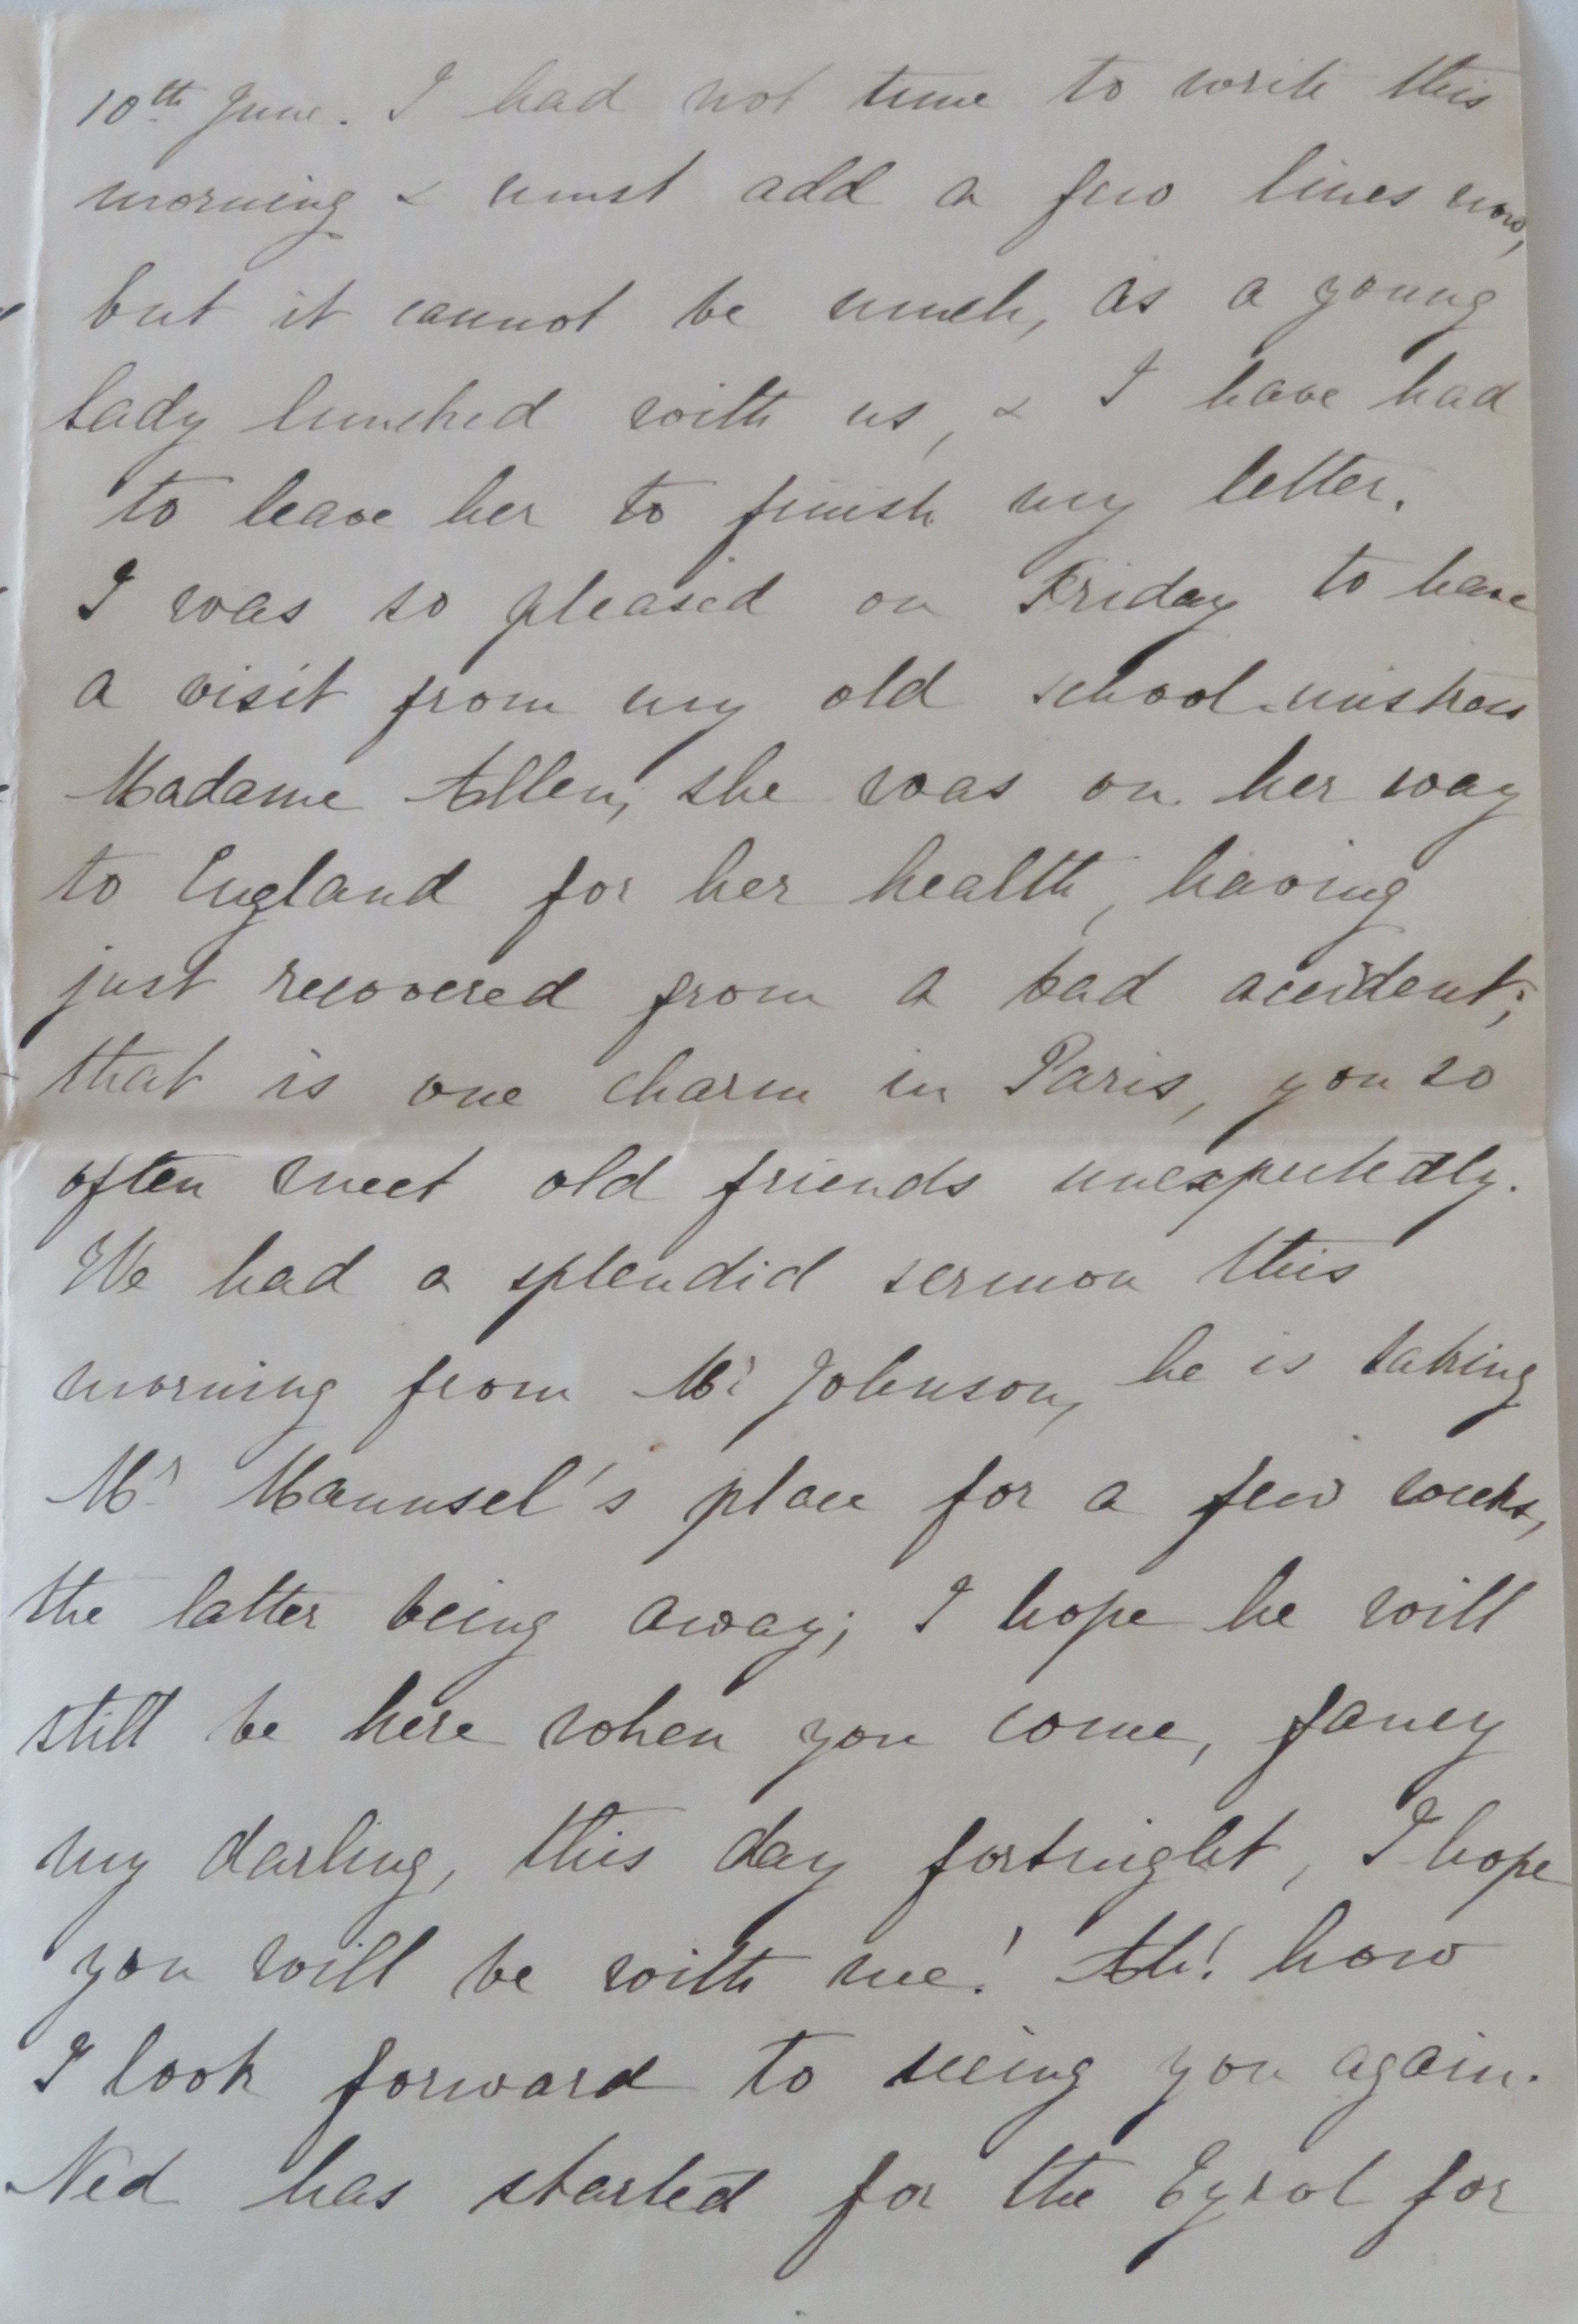 10th June. I had not time to write this
morning & must add a few lines now,
but it cannot be much, as a young
lady lunched with us, & I have had
to leave her to finish my letter.
I was so pleased on Friday to have
a visit from my old school-mistress
Madame Allen, she was on her way
to England for her health, having
just recovered from a bad accident;
that is one charm in Paris, you so
often meet old friends unexpectedly.
We had a splendid sermon this
morning from Mr Johnson, he is taking
Mr Maunsel's place for a few weeks,
the latter being away; I hope he will
still be here when you come, fancy
my darling, this day fortnight, I hope
you will be with me! Ah! how
I look forward to seeing you again.
Ned has started for the Tyrol for